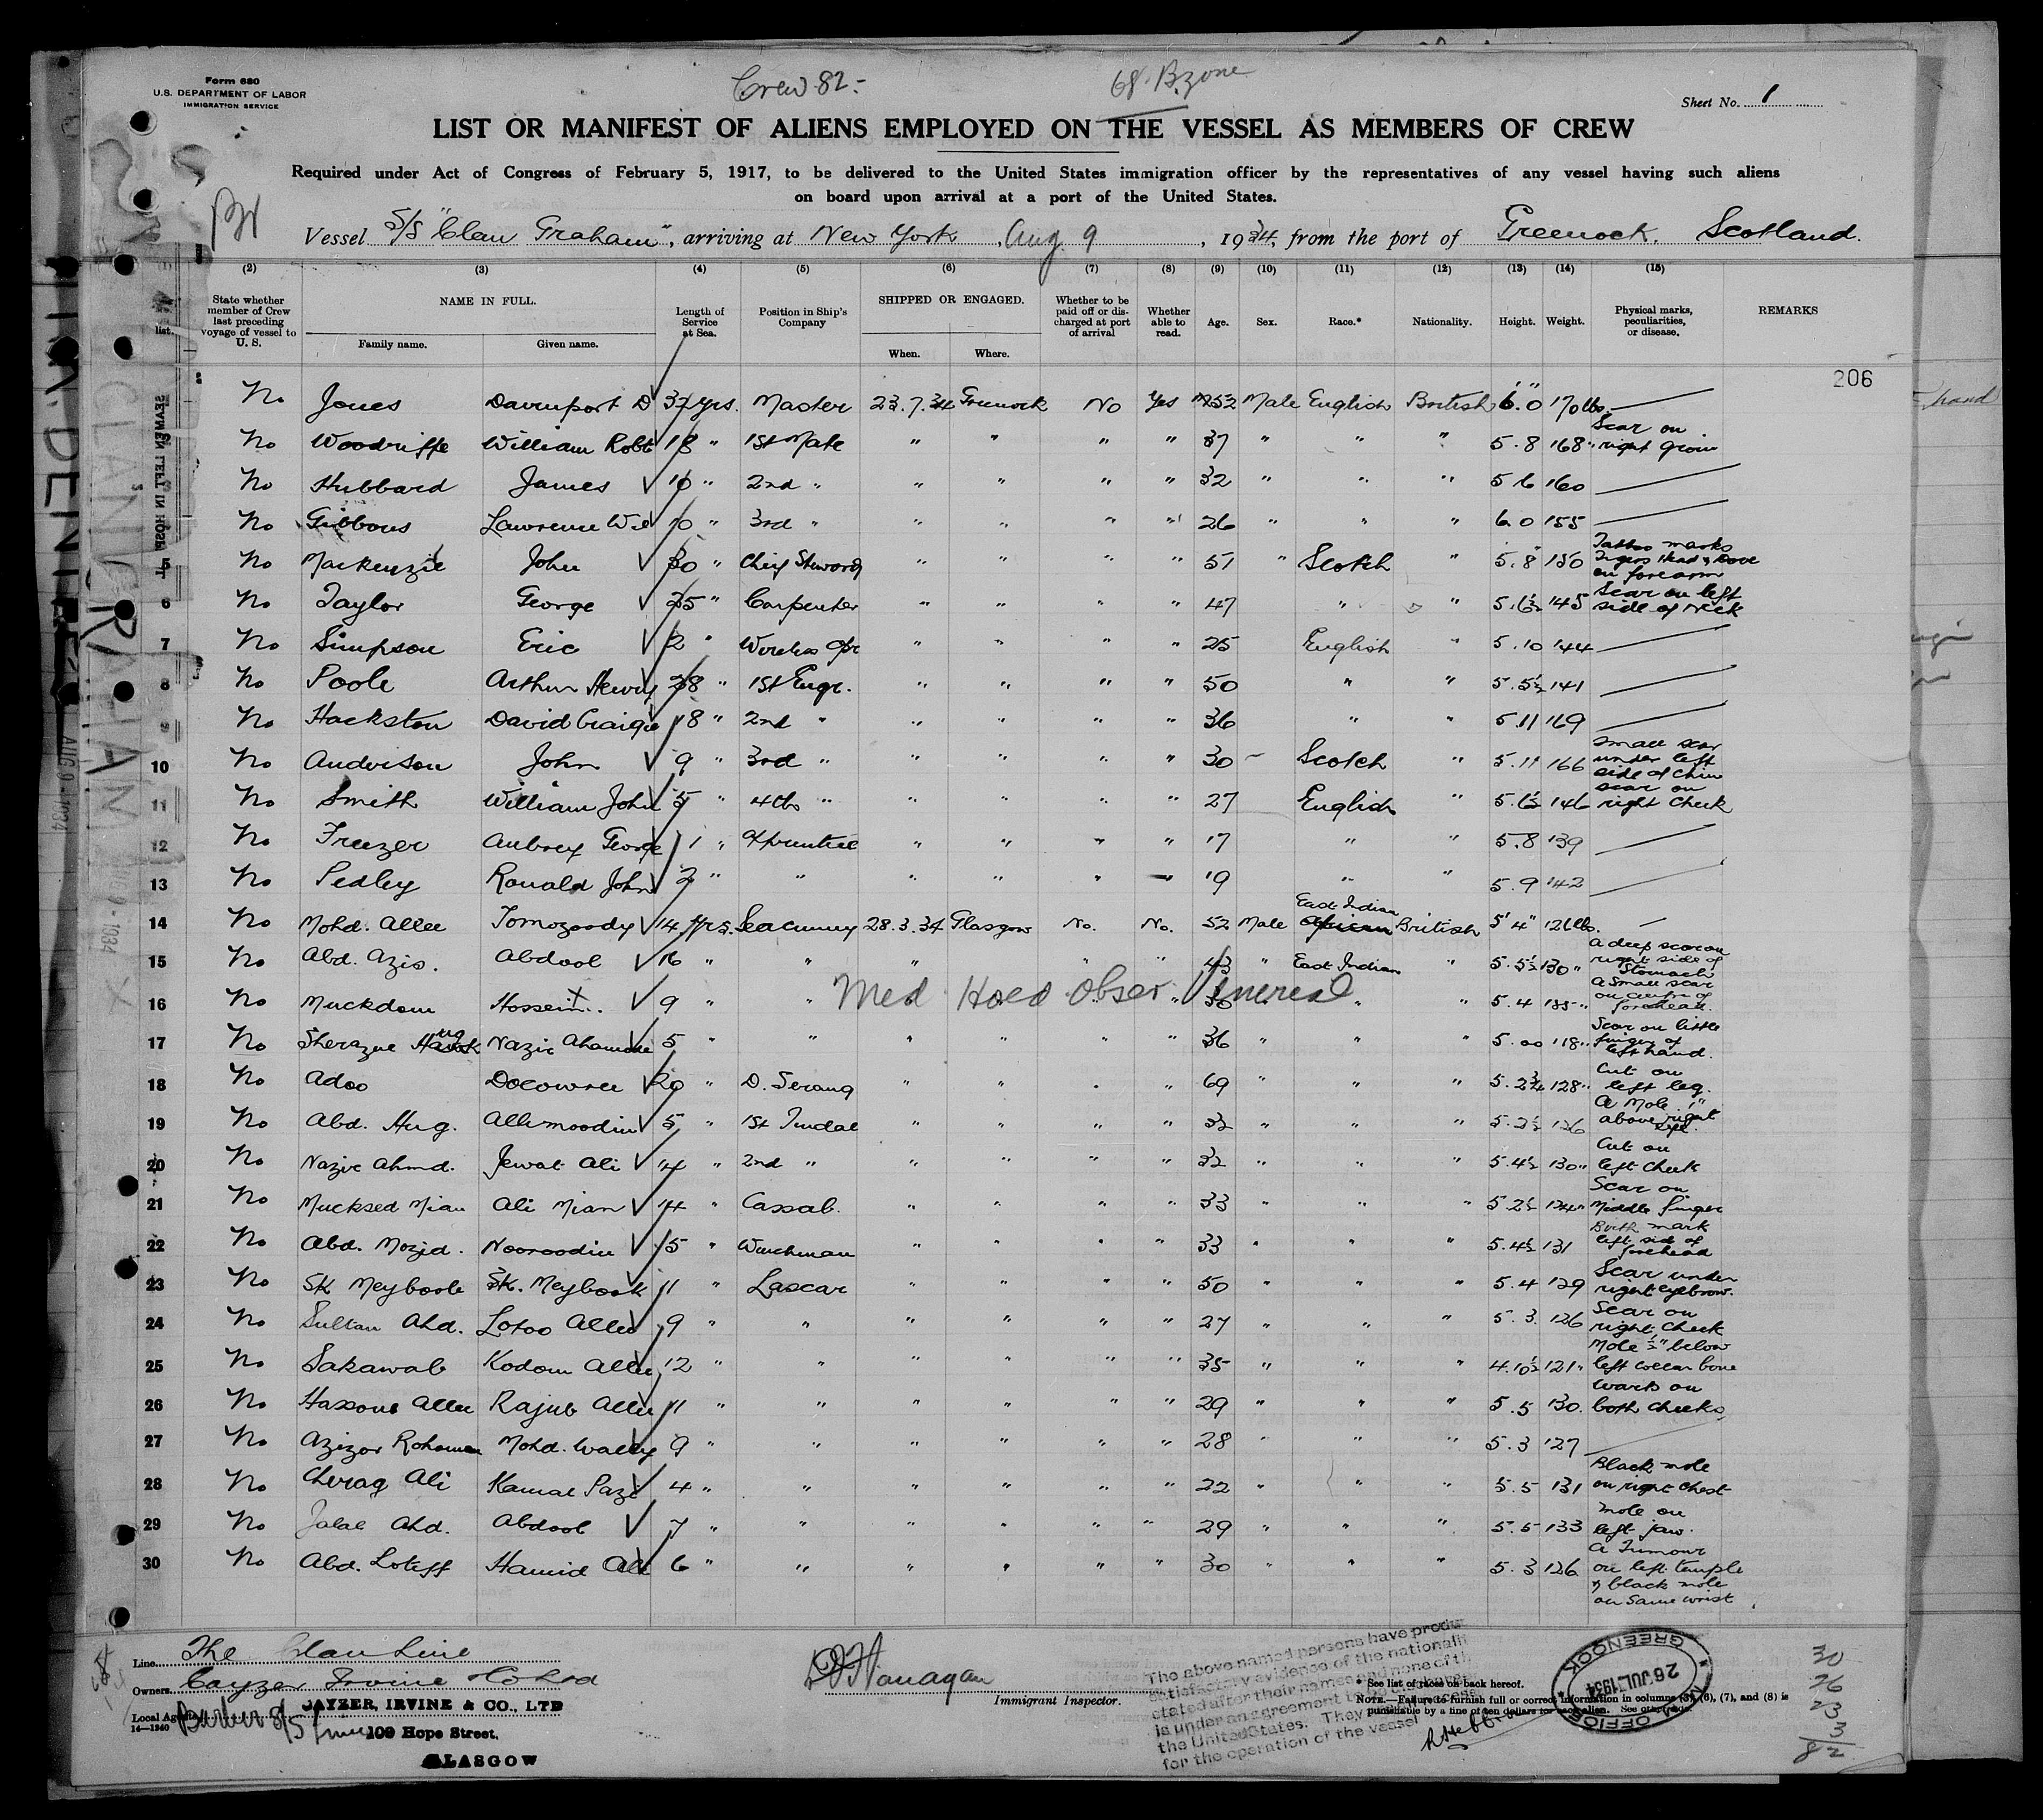 Form 680
U.S. DEPARTMENT OF LABOR
IMMIGRATION SERVICE
Crew 82-
68 Bzone
Sheet No. 1
LIST OR MANIFEST OF ALIENS EMPLOYED ON THE VESSEL AS MEMBERS OF CREW
Required under Act of Congress of February 5, 1917, to be delivered to the United States immigration officer by the representatives of any vessel having such aliens
on board upon arrival at a port of the United States.
Vessel S/S "Clan Graham", arriving at New York, Aug 9, 1934, from the port of Greenock. Scotland.
(2) (3) (4) (5) (6) (7) (8) (9) (10) (11) (12) (13) (14) (15)
State whether member of Crew last preceding voyage of vessel to U. S. NAME IN FULL. Family name. Given name. Length of Service at Sea. Position in Ship's Company SHIPPED OR ENGAGED. When. Where. Whether to be paid off or discharged at port of arrival Whether able to read. Age. Sex. Race.* Nationality. Height. Weight. Physical marks, peculiarities, or disease. REMARKS
206
No Jones Davenport D 37 yrs. Master 23.7.34 Greenock No Yes 52 Male English British 6.0 170 lbs. —
No Woodriffe William Robt 18 " 1st Mate " " " " 37 " " " 5.8 168 " Scar on right groin
No Hubbard James 10 " 2nd " " " " " 32 " " " 5.6 160 —
No Gibbons Lawrence Wil 10 " 3rd " " " " " 26 " " " 6.0 155 —
5 No Mackenzie John 30 " Chief Steward " " " " 51 " Scotch " 5.8 150 Tattoo marks Tigers Head & Dove on forearm
6 No Taylor George 25 " Carpenter " " " " 47 " " 5.6½ 145 Scar on left side of Neck
7 No Simpson Eric 2 " Wireless Opr " " " 25 English " 5.10 144 —
8 No Poole Arthur Henry 28 " 1st Engr. " " " " 50 " " 5.5½ 141 —
9 No Hackston David Craigie 18 " 2nd " " " " " 36 " " 5.11 169 —
10 No Anderson John 9 " 3rd " " " " " 30 Scotch " 5.11 166 Small scar under left side of chin
11 No Smith William John 5 " 4th " " " " " 27 English " 5.6½ 146 scar on right cheek
12 No Freezer Aubrey George 1 " Apprentice " " " " 17 " " 5.8 139 —
13 No Pedley Ronald John 2 " " " " " " 19 " " 5.9 142 —
14 No Mohd. Allee Tomozoody 14 yrs. Seacunny 28.3.34 Glasgow No. No. 52 Male East Indian British 5'4" 126 lbs. —
15 No Abd. Azis. Abdool 16 " " " " " 43 " East Indian " 5.5½ 130 " A deep scar on right side of Stomach
16 No Muckdom Hossein. 9 " " Med Hold Obser Venereal 30 " " 5.4 135 " A Small scar on centre of forehead.
17 No Nazir Ahamode 5 " " " " " " 36 " " " 5.00 118 " Scar on little finger of left hand.
18 No Adoo Docowree 20 " D. Serang " " " " 69 " " " 5.2¾ 128 " Cut on left leg.
19 No Abd. Hug. Allimoodin 5 " 1st Tindal " " " " 32 " " " 5.2½ 126 A Mole 1" above right eye.
20 No Nazir Ahmd. Jewat Ali 14 " 2nd " " " " " 32 " " " 5.4½ 130 " Cut on left cheek
21 No Mucksed Mian Ali Mian 14 " Cassab. " " " " 33 " " " 5.2½ 124 " Scar on Middle finger
22 No Abd. Mozid. Nooroodin 15 " Winchman " " " " 33 " " " 5.4½ 131 Birth mark left side of forehead
23 No Sk Meyboob Sk. Meybook 11 " Lascar " " " " 50 " " " 5.4 129 Scar under right eyebrow.
24 No Sultan Ahd. Lotoo Allee 9 " " " " " " 27 " " " 5.3 126 Scar on right cheek
25 No Sakawab Kodom Allee 12 " " " " " " 35 " " " 4.10½ 121 " Mole ½" below left collar bone
26 No Hassone Allee Rajub Allee 11 " " " " " " 29 " " " 5.5 130. Warts on both cheeks
27 No Azizor Rohoman Mohd. Walley 9 " " " " " " 28 " " " 5.3 127 —
28 No Cherag Ali Kamal Gazi 4 " " " " " " 22 " " " 5.5 131 Black mole on right chest
29 No Jalal Ahd. Abdool 7 " " " " " " 29 " " " 5.5 133 Mole on left jaw.
30 No Abd. Loteff Hamid Ali 6 " " " " " " 30 " " " 5.3 126 A Tumour on left temple & black mole on Same wrist
Line The Clan Line
Owners Cayzer Irvine & Co Ltd
Local Agents Barber S/S Lines
14—1240
CAYZER, IRVINE & CO., LTD
109 Hope Street,
GLASGOW
Immigrant Inspector.
The above named persons have produced
satisfactory evidence of the nationality
stated after their names and none of them
is under an agreement to be discharged in
the United States. They are necessary
for the operation of the vessel
* See list of races on back hereof.
NOTE.—Failure to furnish full or correct information in columns (3), (6), (7), and (8) is
punishable by a fine of ten dollars for each alien. See other side.
GREENOCK
26 JUL 1934
OFFICE
30
26
23
3
82
AUG 9 - 1934
CLAN GRAHAM